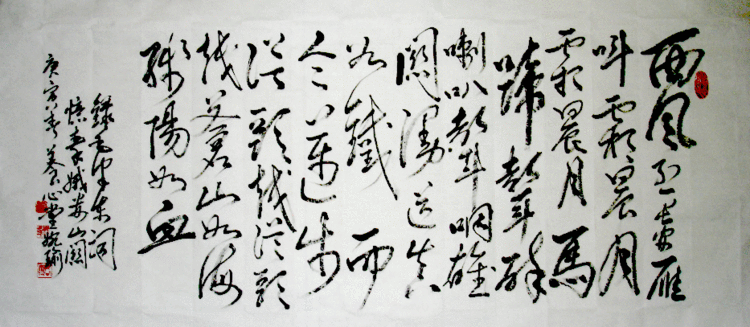 西風烈長空雁
叫霜晨月
霜晨月馬
蹄聲碎
喇叭聲咽雄
關漫道真
如鐵而
今邁步
從頭越從頭
越蒼山如海
殘陽如血
錄毛澤東詞
憶秦娥婁山關
庚寅春 心堂婉瑜